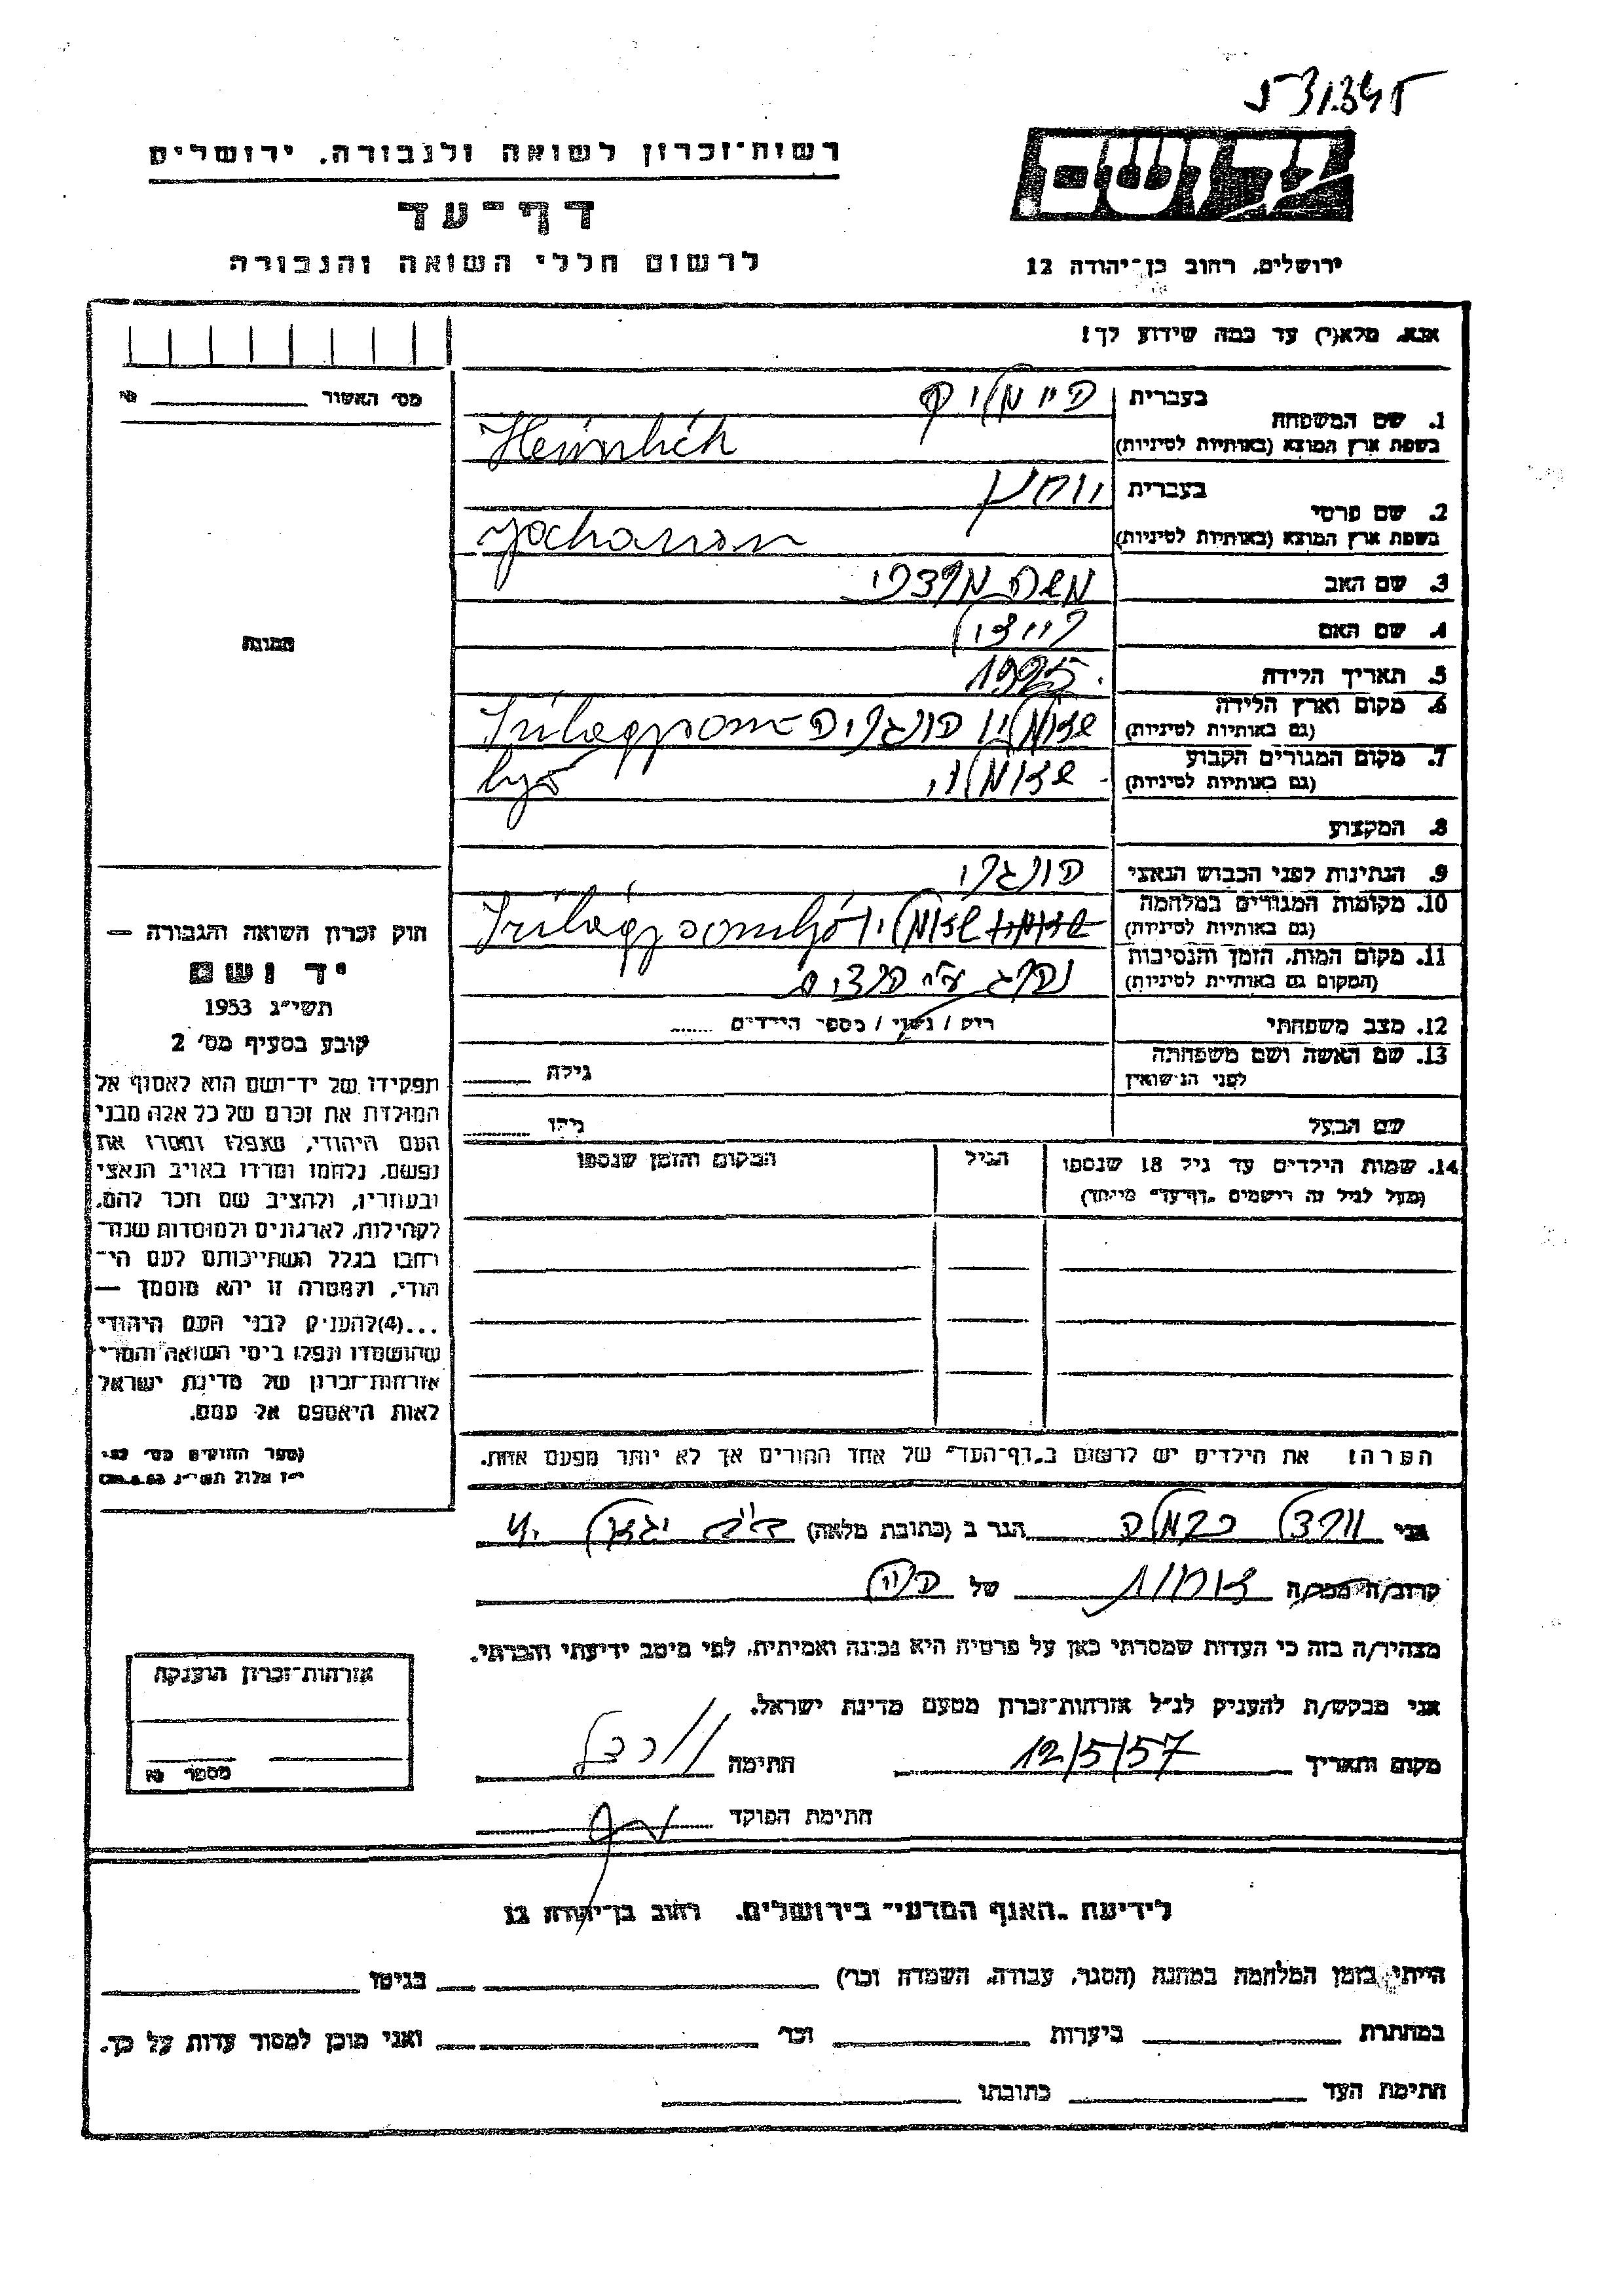 531345
רשות־זכרון לשואה ולגבורה, ירושלים
דף־עד
לרשום חללי השואה והגבורה
ירושלים, רחוב בן־יהודה 12
אנא, מלא(י) עד כמה שידוע לך!
מס׳ האשור
1. שם המשפחה
בעברית
בשפת ארץ המוצא (באותיות לטיניות)
Heinrich
2. שם פרטי
בעברית יוחנן
בשפת ארץ המוצא (באותיות לטיניות)
Jochanan
3. שם האב משה מרדכי
4. שם האם
5. תאריך הלידה 1925
6. מקום וארץ הלידה
(גם באותיות לטיניות)
7. מקום המגורים הקבוע
(גם באותיות לטיניות)
8. המקצוע
9. הנתינות לפני הכבוש הנאצי הונגרי
10. מקומות המגורים במלחמה
(גם באותיות לטיניות)
11. מקום המות, הזמן והנסיבות
(המקום גם באותיות לטיניות)
נהרג ע״י
12. מצב משפחתי רווק / נשוי / מספר הילדים
13. שם האשה ושם משפחתה
לפני הנישואין
גילה
שם הבעל גילו
14. שמות הילדים עד גיל 18 שנספו הגיל המקום והזמן שנספו
(מעל לגיל זה רישמים „דף־עד״ מייחד)
הערה! את הילדים יש לרשום ב„דף־העד״ של אחד ההורים אך לא יותר מפעם אחת.
התמונה
חוק זכרון השואה והגבורה —
יד ושם
תשי״ג 1953
קובע בסעיף מס׳ 2
תפקידו של יד־ושם הוא לאסוף אל
המולדת את זכרם של כל אלה מבני
העם היהודי, שנפלו ומסרו את
נפשם, נלחמו ומרדו באויב הנאצי
ובעוזריו, ולהציב שם וזכר להם,
לקהילות, לארגונים ולמוסדות שנח־
רבו בגלל השתייכותם לעם הי־
הודי, ולמטרה זו יהא מוסמך —
...(4)להעניק לבני העם היהודי
שהושמדו ונפלו בימי השואה והמרי
אזרחות־זכרון של מדינת ישראל
לאות היאספם אל עמם.
אני הגר ב (כתובת מלאה)
קרוב/ה מכר/ה של
מצהיר/ה בזה כי העדות שמסרתי כאן על פרטיה היא נכונה ואמיתית, לפי מיטב ידיעתי והכרתי.
אני מבקש/ת להעניק לנ״ל אזרחות־זכרון מטעם מדינת ישראל.
מקום ותאריך 12/5/57 חתימה
חתימת הפוקד
אזרחות־זכרון הוענקה
מספר
לידיעת „האגף המדעי״ בירושלים, רחוב בן־יהודה 12
הייתי בזמן המלחמה במחנה (הסגר, עבודה, השמדה וכו׳) בגיטו
במחתרת ביערות וכו׳ ואני מוכן למסור עדות על כך.
חתימת העד כתובתו